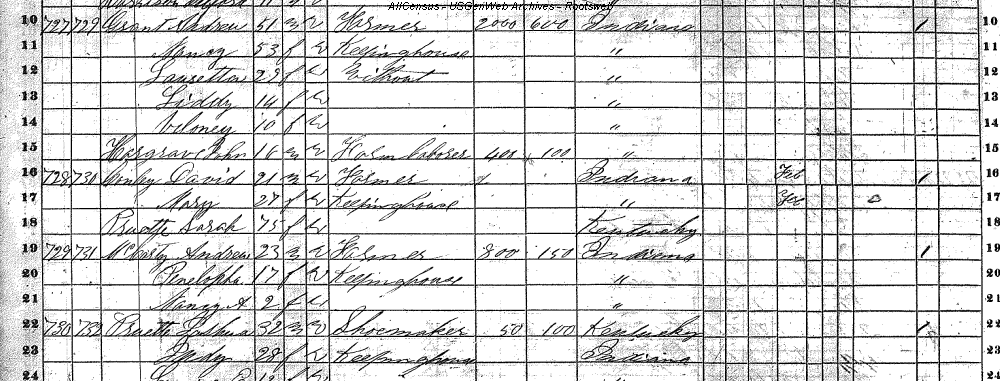 AllCensus - USGenWeb Archives - Rootsweb
10 727 729 Grant Andrew 51 m W Farmer 2000 600 Indiana 1 10
11 Nancy 53 f W Keepinghouse " 11
12 29 f W Without " 12
13 Liddy 14 f W " 13
14 10 f W " 14
15 Hargrave John 16 m W Farm laborer 400 100 " 15
16 728 730 Conley David 21 m W Farmer Indiana Feb 1 16
17 Mary 27 f W Keepinghouse " Feb 17
18 Pruett Sarah 75 f W Kentucky 18
19 729 731 McCarty Andrew 23 m W Farmer 800 150 Indiana 1 19
20 Penelopha 17 f W Keepinghouse " 20
21 Nancy A 2 f W " 21
22 730 732 Pruett Joshua 32 m W Shoemaker 50 100 Kentucky 1 22
23 Judy 28 f W Keepinghouse Indiana 23
24 " 24